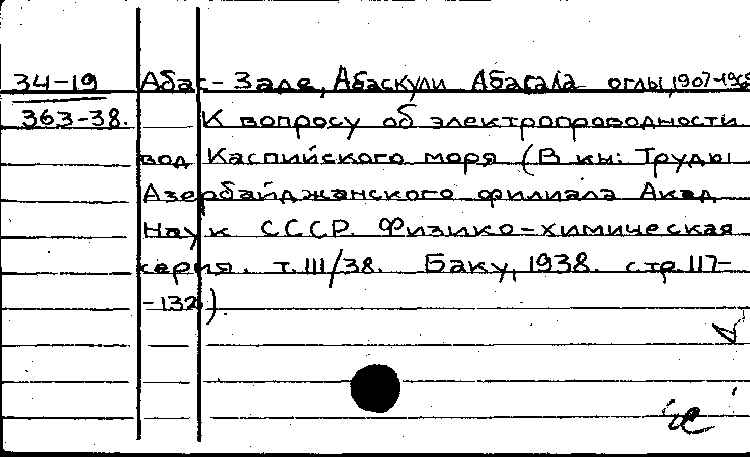 34-19 Абас-Заде, Абаскули Абасала оглы, 1907-1968
363-38. К вопросу об электропроводности
вод Каспийского моря (В кн: Труды
Азербайджанского филиала Акад
Наук СССР. Физико-химическая
серия. т.III/38. Баку, 1938. стр.117-
-132).